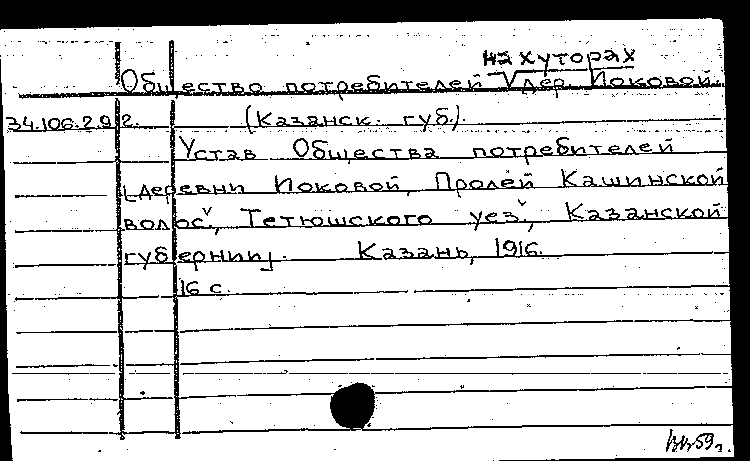 на хуторах
Общество потребителей √ дер. Иоковой.
34.106.2.92. (Казанск. губ.).
Устав Общества потребителей
[деревни Иоковой, Пролей Кашинской
волос., Тетюшского уез., Казанской
губернии]. Казань, 1916.
16 с.